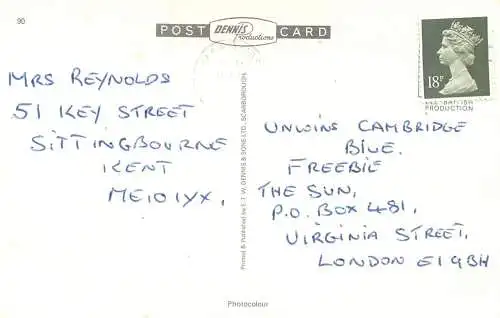 90
POST DENNIS Productions CARD
18P
BRITISH
PRODUCTION
MRS REYNOLDS
51 KEY STREET
SITTINGBOURNE
KENT
ME10 1YX.
Printed & Published by E. T. W. DENNIS & SONS LTD., SCARBOROUGH.
UNWINS CAMBRIDGE
BLUE.
FREEBIE
THE SUN,
P.O. BOX 481,
VIRGINIA STREET,
LONDON E1 9BH
Photocolour